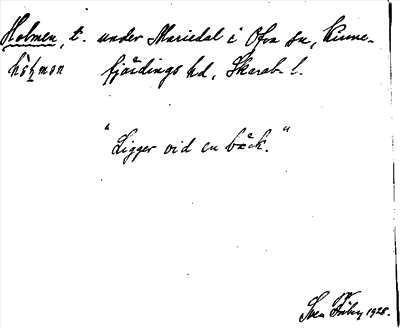 Holmen, t. under Mariedal i Ova sn, Kinne-
fjärdings hd, Skarab. l.
"Ligger vid en bäck."
Sven 1928.